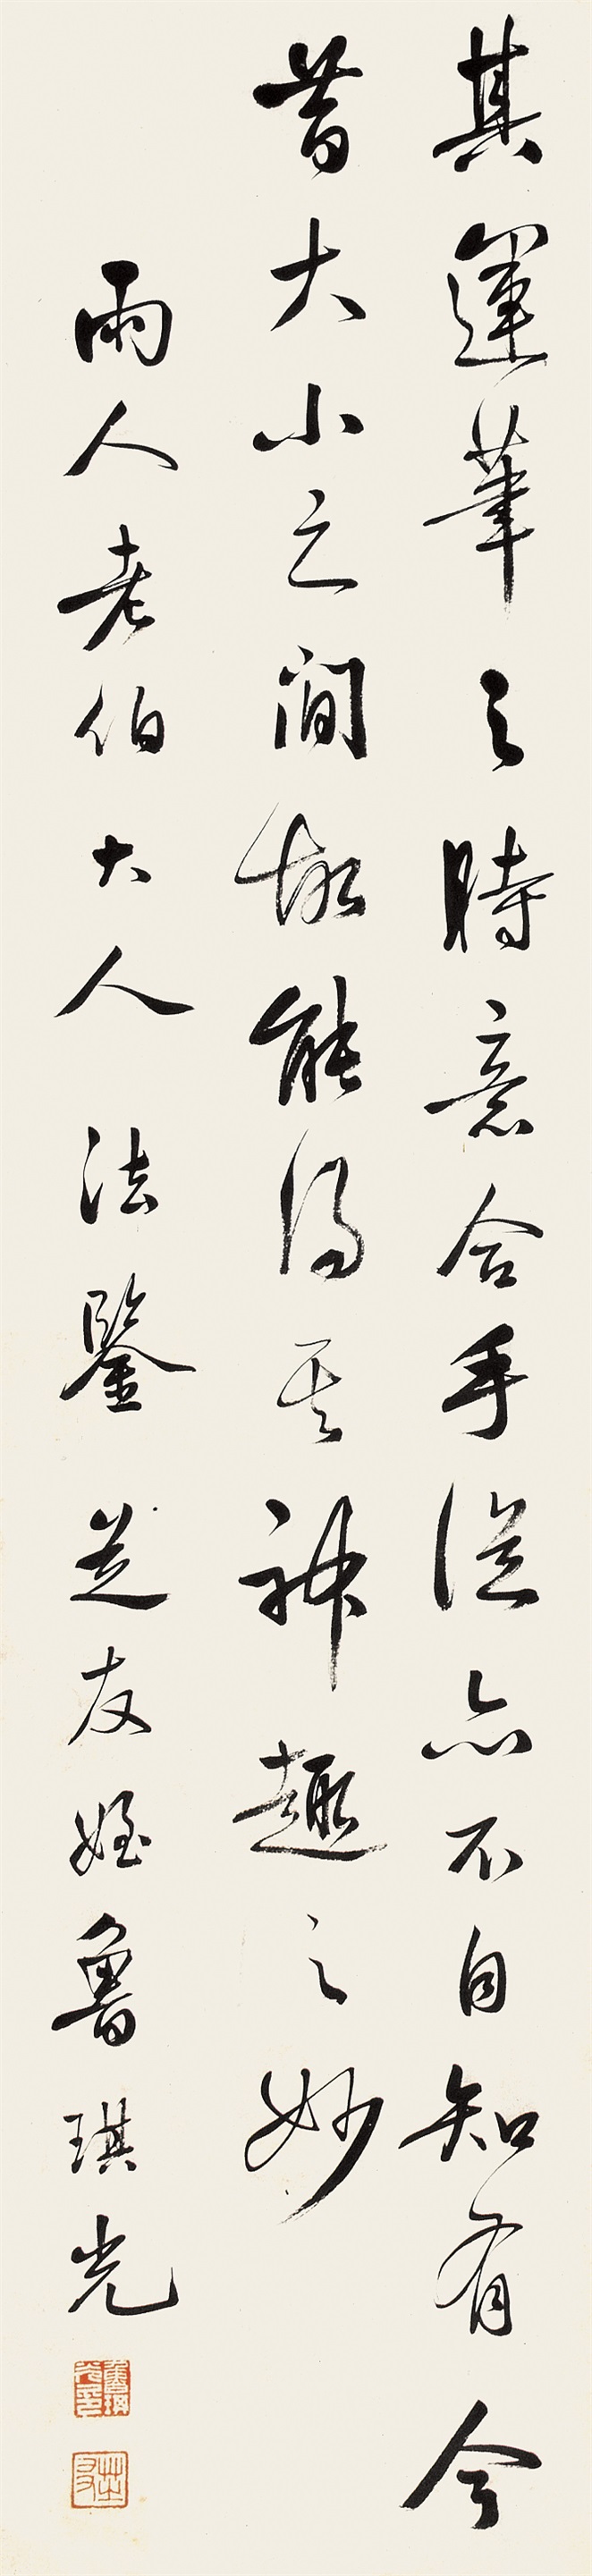 其運筆之時意合手從亦不自知有今
昔大小之間故能得其神趣之妙
雨人老伯大人 法鑒 芝友姪魯琪光
魯琪光印
芝友